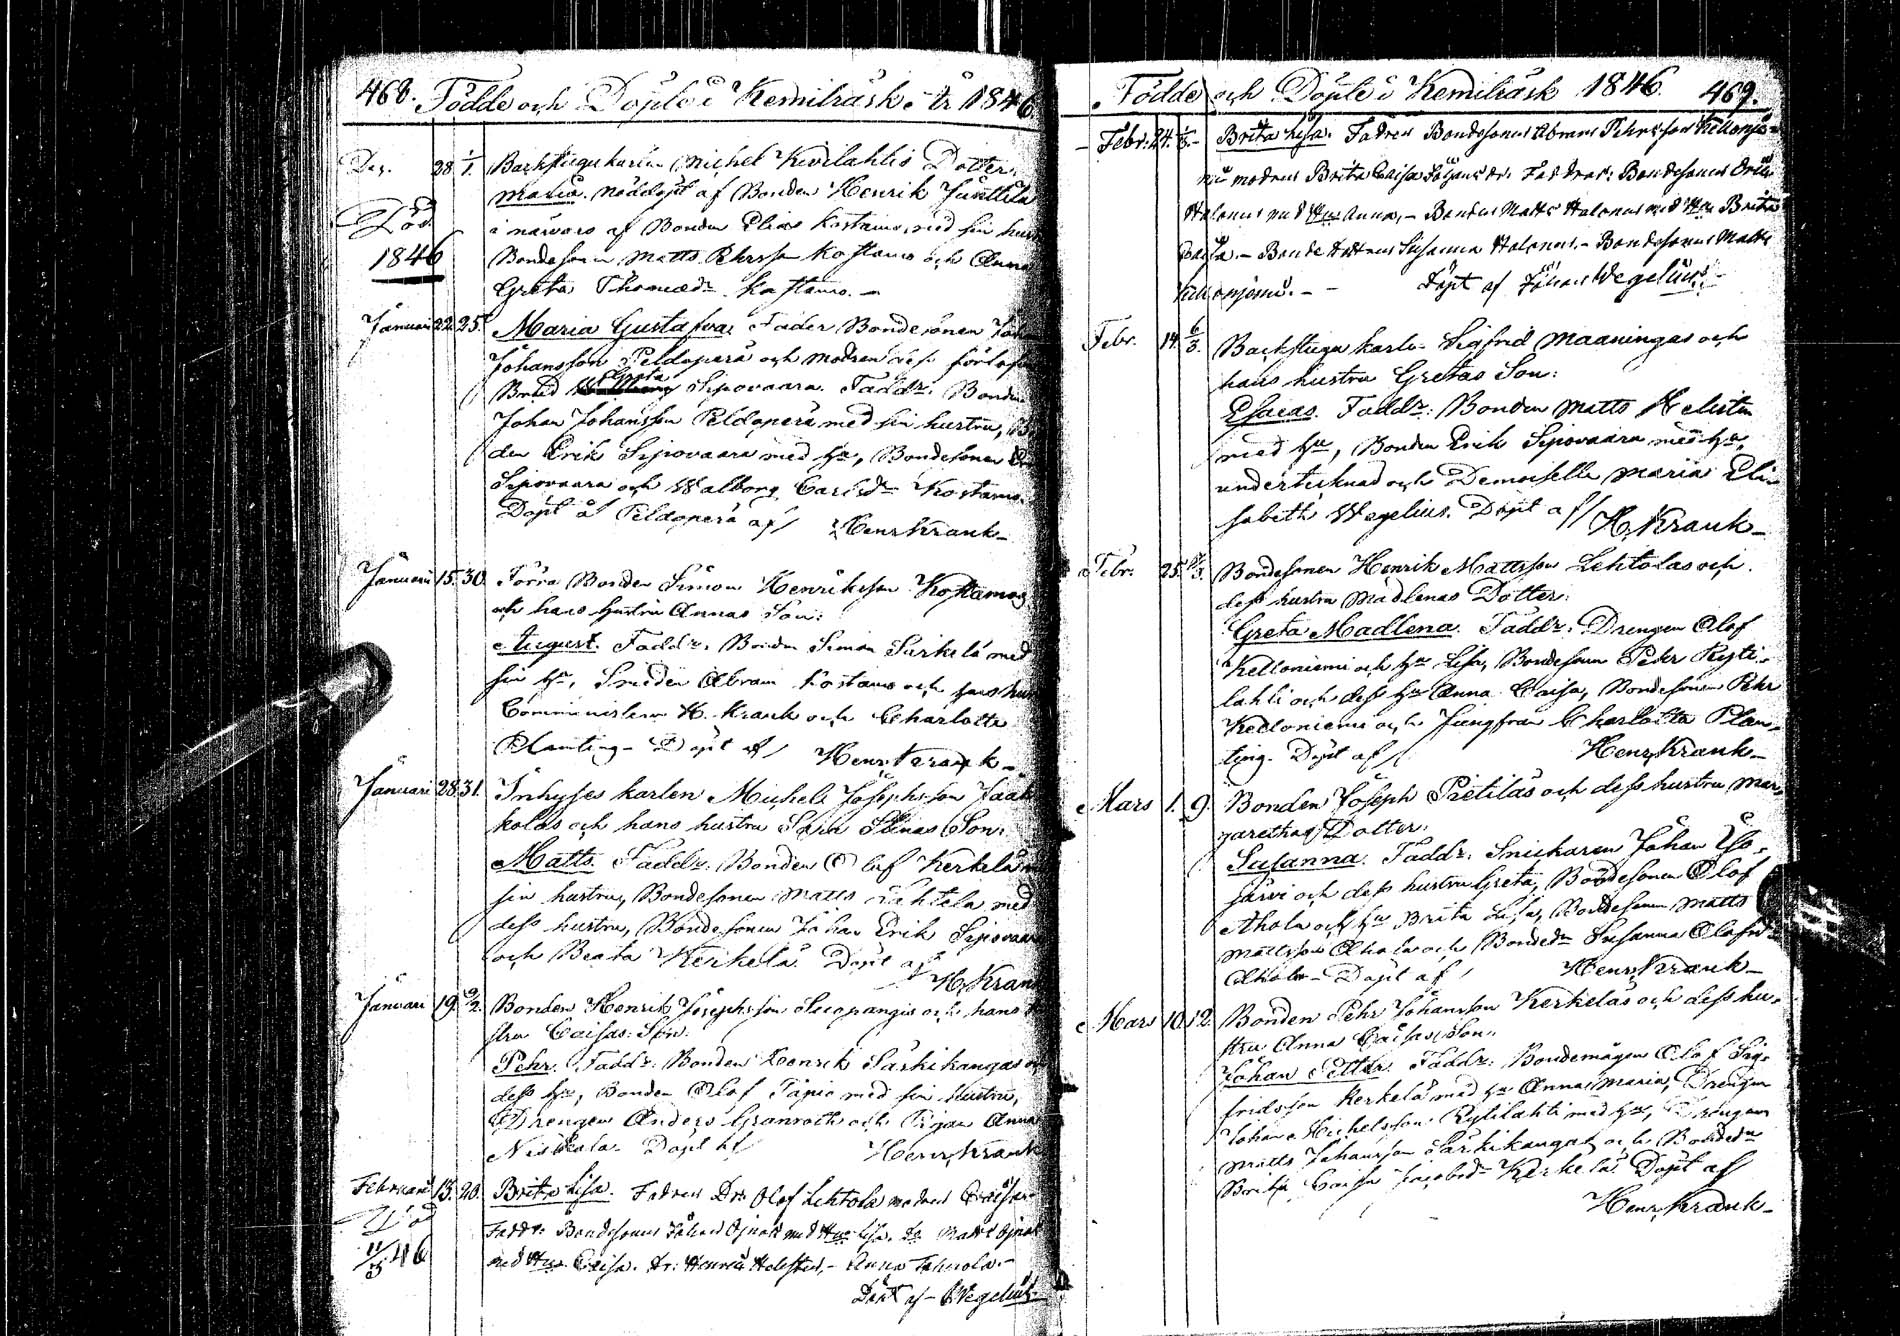 468. Födde och Döpte i Kemiträsk år 1846
Dec. 28 1/1. Backstugukarlen Michel Kivilahtis Dotter:
Maria. nöddöpt af Bonden Henrik Junttila
Död i närvaro af Bonden Elias Kostamo, med sin hust
1846 Bondesonen Matts Pehrsson Kostamo och Anna
Greta Thomædr Kostamo. –
Januari 22. 25. Maria Gustafva. Fader Bondesonen Joh
Johansson Peldoperä och modren dess förlofv
Brud Greta Sipovaara. Faddr. Bonden
Johan Johansson Peldoperä med sin hustru, B
den Erik Sipovaara med Hu, Bondesonen
Sipovaara och Walborg Carlsdr Kostamo.
Döpt å Peldoperä af/ Henr. Krank –
Januari 15. 30. Förra Bonden Simon Henriksson Kostamos
och hans hustru Annas Son:
August. Faddr. Bonden Simon Särkelä med
sin Hu, Smeden Abram Kostamo och hans hus
Comministern H. Krank och Charlotta
Planting – Döpt af/ Henr. Krank –
Januari 28. 31. Inhyses karlen Michel Josephsson Jaak
kolas och hans hustru Sara Stinas Son:
Matts. Faddr. Bonden Olof Kerkelä m
sin hustru, Bondesonen Matts Lahtela med
dess hustru, Bondesonen Johan Erik Sipovaara
och Beata Kerkelä. Döpt af
H. Krank
Januari 19. 9/2. Bonden Henrik Josephsson Luopangis och hans h
stru Caisas Son:
Pehr. Faddr. Bonden Henrik Särkikangas
dess Hu, Bonden Olof Tapio med sin hustru,
Drengen Anders Granroth och Pigan Anna
Niskala. Döpt af/ Henr. Krank
Februari 15. 20. Brita Lisa. Fadren Dr. Olof Lehtola modren Caisa
Död Faddr: Bondesonen Johan Ojnas med Hu Lisa. Do Matts Ojnas
11/3 46 med Hu Caisa. Dr. Henrik Helisten, – Anna Tohmola. –
Döpt af – Wegelius.
Födde och Döpte i Kemiträsk 1846. 469.
Febr. 24. 1/3. – Brita Lisa. Fadren Bondesonen Abram Pehrsson Kellonie
mi modren Brita Caisa Johansdr. Faddrar: Bondesonen
Halonen med Hu Anna, – Bonden Matts Halonen med Hu Brita
Caisa. – Bonde dottren Susanna Halonen. – Bondesonen Matts
Kelloniemi. – – Döpt af Johan Wegelius. –
Febr. 14. 6/3. Backstugu karlen Sigfrid Maaningas och
hans hustru Gretas Son:
Esaias. Faddr: Bonden Matts Helisten
med Hu, Bonden Erik Sipovaara med Hu,
undertecknad och Demoiselle Maria Eli-
sabeth Wegelius. Döpt af/ H. Krank –
Febr. 25. Bondesonen Henrik Mattsson Lehtolas och
dess hustru Madlenas Dotter:
Greta Madlena. Faddr: Drengen Olof
Kelloniemi och Hu Lisa, Bondesonen Pehr Kyti-
lahti och dess Hu Anna Caisa, Bondesonen Pehr
Kelloniemi och Jungfrun Charlotta Plan-
ting. Döpt af/ Henr. Krank –
Mars 1. 9. Bonden Joseph Pietiläs och dess hustru Mar-
garethas Dotter:
Susanna. Faddr. Snickaren Johan Iso-
järvi och dess hustru Greta, Bondesonen Olof
Ahola och Hu Brita Lisa, Bondesonen Matts
Mattsson Ahola och Bondedr Susanna Olofsd
Ahola – Döpt af/ Henr. Krank –
Mars 10. 12. Bonden Pehr Johansson Kerkeläs och dess hu-
stru Anna Caisas Son:
Johan Petter. Faddr: Bondemågen Olof Sig-
fridsson Kerkelä med Hu Anna Maria, Drengen
Johan Michelsson Kytilahti med Hu, Drengen
Matts Johansson Särkikangas och Bondedr
Brita Caisa Jacobsdr Kerkelä. Döpt af
Henr. Krank –